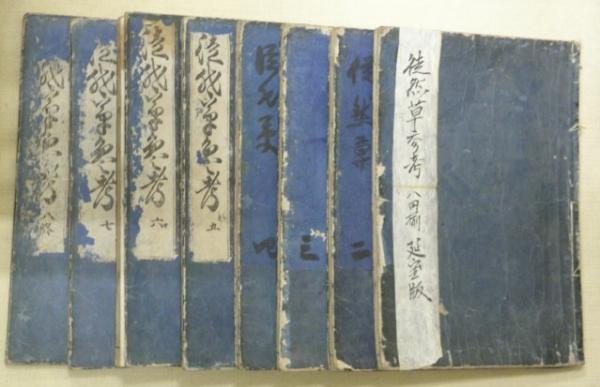 徒然草参考 八冊揃 延宝版
徒然草
二
三
四
徒然草参考
五
徒然草参考
六
徒然草参考
七
然草参考
八終